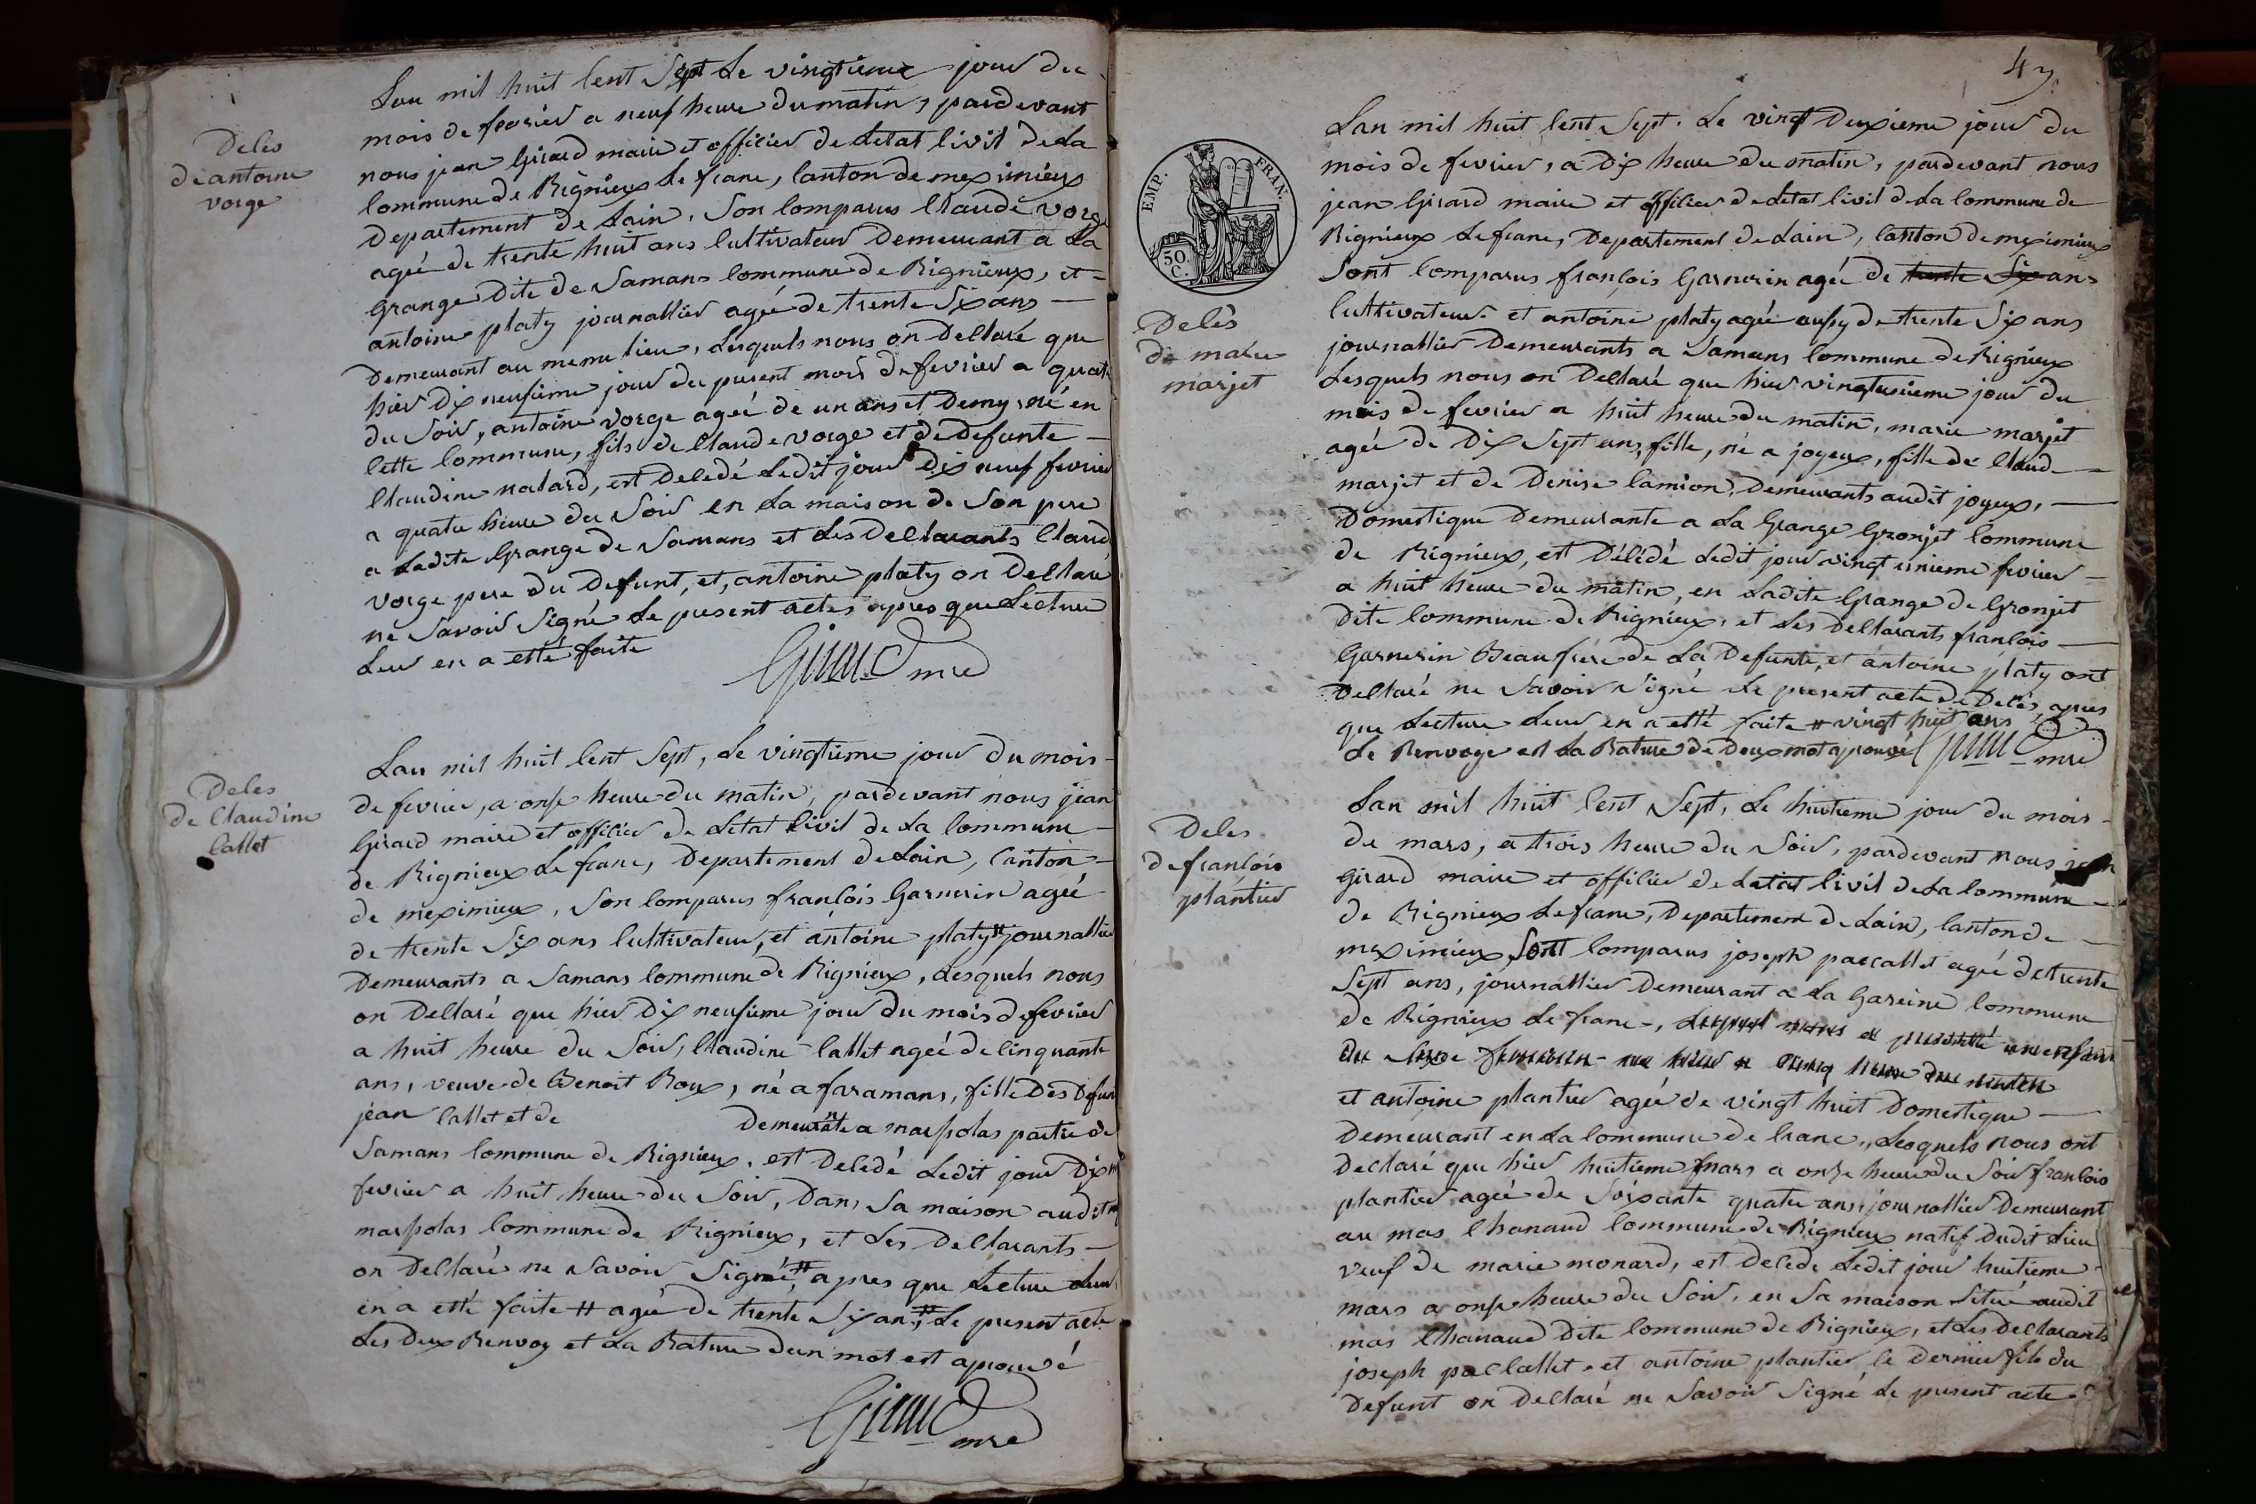 Deles
de antoine
vorge
Lan mil huit Cent Sept Le vingtieme jour du
mois de fevrier a neuf heure du matin, pardevant
nous jean Girard maire et officier de Letat Civil de La
Commune de Rignieux Le franc, Canton de meximieux
Departement de Lain. Son Comparus Claude vorge
ageé de trente huit ans Cultivateur Demeurant a La
Grange Dite de Samans Commune de Rignieux, et =
antoine platy journallier ageé de trente Six ans —
Demeurant au meme lieu, Lesquels nous on Declaré que
hier Dix neufieme jour du present mois de fevrier a quatre
du Soir, antoine vorge ageé de un ans et Demy, né en
Cette Commune, fils de Claude vorge et de Defunte —
Claudine natard, est Decedé Ledit jour Dix neuf fevrier
a quatre heure du Soir en La maison de Son pere
a Ladite Grange de Samans et Les Declarants Claude
vorge pere du Defunt, et, antoine platy on Declaré
ne Savoir Signé Le present actes apres que Lecture
Leur en a etté faite
Girard mre
Deles
de Claudine
Callet
Lan mil huit Cent Sept, Le vingtieme jour du mois -
de fevrier, a onse heure du matin, pardevant nous jean
Girard maire et officier de Letat Civil de La Commune -
de Rignieux Le franc, Departement de Lain, Canton -
de meximieux, Son Comparus francois Garnerin ageé
de trente Six ans Cultivateur, et antoine platy # journallier
Demeurants a Samans Commune de Rignieux, Lesquels nous
on Declaré que hier Dix neufieme jour du mois de fevrier
a huit heure du Soir, Claudine Callet ageé de Cinquante
ans, veuve de Benoit Roux, né a faramans, fille Des Defun
jean Callet et de Demeurante a marsolas partie de
Samans Commune de Rignieux, est Decedé Ledit jour Dix nf
fevrier a huit heure du Soir, Dans Sa maison audit
marsolas Commune de Rignieux, et Les Declarants -
on Declaré ne Savoir Signé # apres que Lecture Leur
en a etté faite # ageé de trente Six ans, # Le present acte
Les Deux Renvoy et La Rature dun mot est aprouvé
Girard mre
43
EMP. FRAN.
50.
C.
Deles
de marie
marjet
Lan mil huit Cent Sept. Le vingt Deuxieme jour du
mois de fevrier, a Dix heure du matin, pardevant nous
jean Girard maire et officier de Letat Civil de La Commune de
Rignieux Le franc, Departement de Lain, Canton de meximieux
Sont Comparus françois Garnerin ageé de trente Six ans
Cultivateur et antoine platy ageé aussy de trente Six ans
journallier Demeurants a Samans Commune de Rignieux
Lesquels nous on Declaré que hier vingtunieme jour du
mois de fevrier a huit heure du matin, marie marjet
ageé de Dix Sept ans, fille, né a joyeux, fille de Claude —
marjet et de Denise Camion, Demeurants audit joyeux, —
Domestique Demeurante a La Grange Gronjet Commune
de Rignieux, est Décédé Ledit jour vingt unieme fevrier -
a huit heure du matin, en Ladite Grange de Gronjet
Dite Commune de Rignieux, et Les Declarants francois —
Garnerin Beaufrere de La Defunte, et antoine platy ont
Declaré ne Savoir Signé Le present acte de Delés, apres
que Lecture Leur en a etté faite # vingt huit ans
Le Renvoye est La Rature de Deux mot aprouvé Girard mre
Deles
de francois
plantier
Lan mil huit Cent Sept, Le huitieme jour du mois -
de mars, a trois heure du Soir, pardevant nous jean
Girard maire et officier de Letat Civil de La Commune -
de Rignieux Le franc, Departement de Lain, Canton de -
meximieux Sont Comparus joseph paccallet ageé de trente
Sept ans, journallier Demeurant a La Gareine Commune
de Rignieux Le franc -, Lequel nous a presenté un enfant
du Sexe
et antoine plantier ageé de vingt huit Domestique —
Demeurant en La Commune de Crane, Lesquels nous ont
Declaré que hier huitieme mars a onse heure du Soir francois
plantier ageé de Soixante quatre ans, journallier Demeurant
au mas Chanaud Commune de Rignieux natif dudit Lieu
veuf de marie monard, est Decede Ledit jour huitieme -
mars a onse heure du Soir, en Sa maison Situé audit
mas Chanaud Dite Commune de Rignieux, et Les Declarants
joseph paccallet, et antoine plantier le Dernier fils du
Defunt on Declaré ne Savoir Signé Le present acte